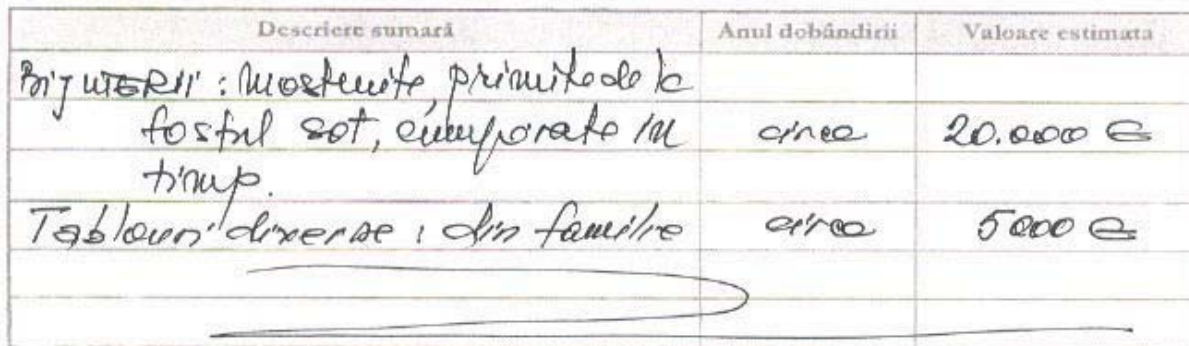 Descriere sumară Anul dobândirii Valoare estimata
BIJUTERII: Mostenite, primite de la
fostul sot, cumparate in circa 20.000 €
timp.
Tablouri diverse: din familie circa 5000 €